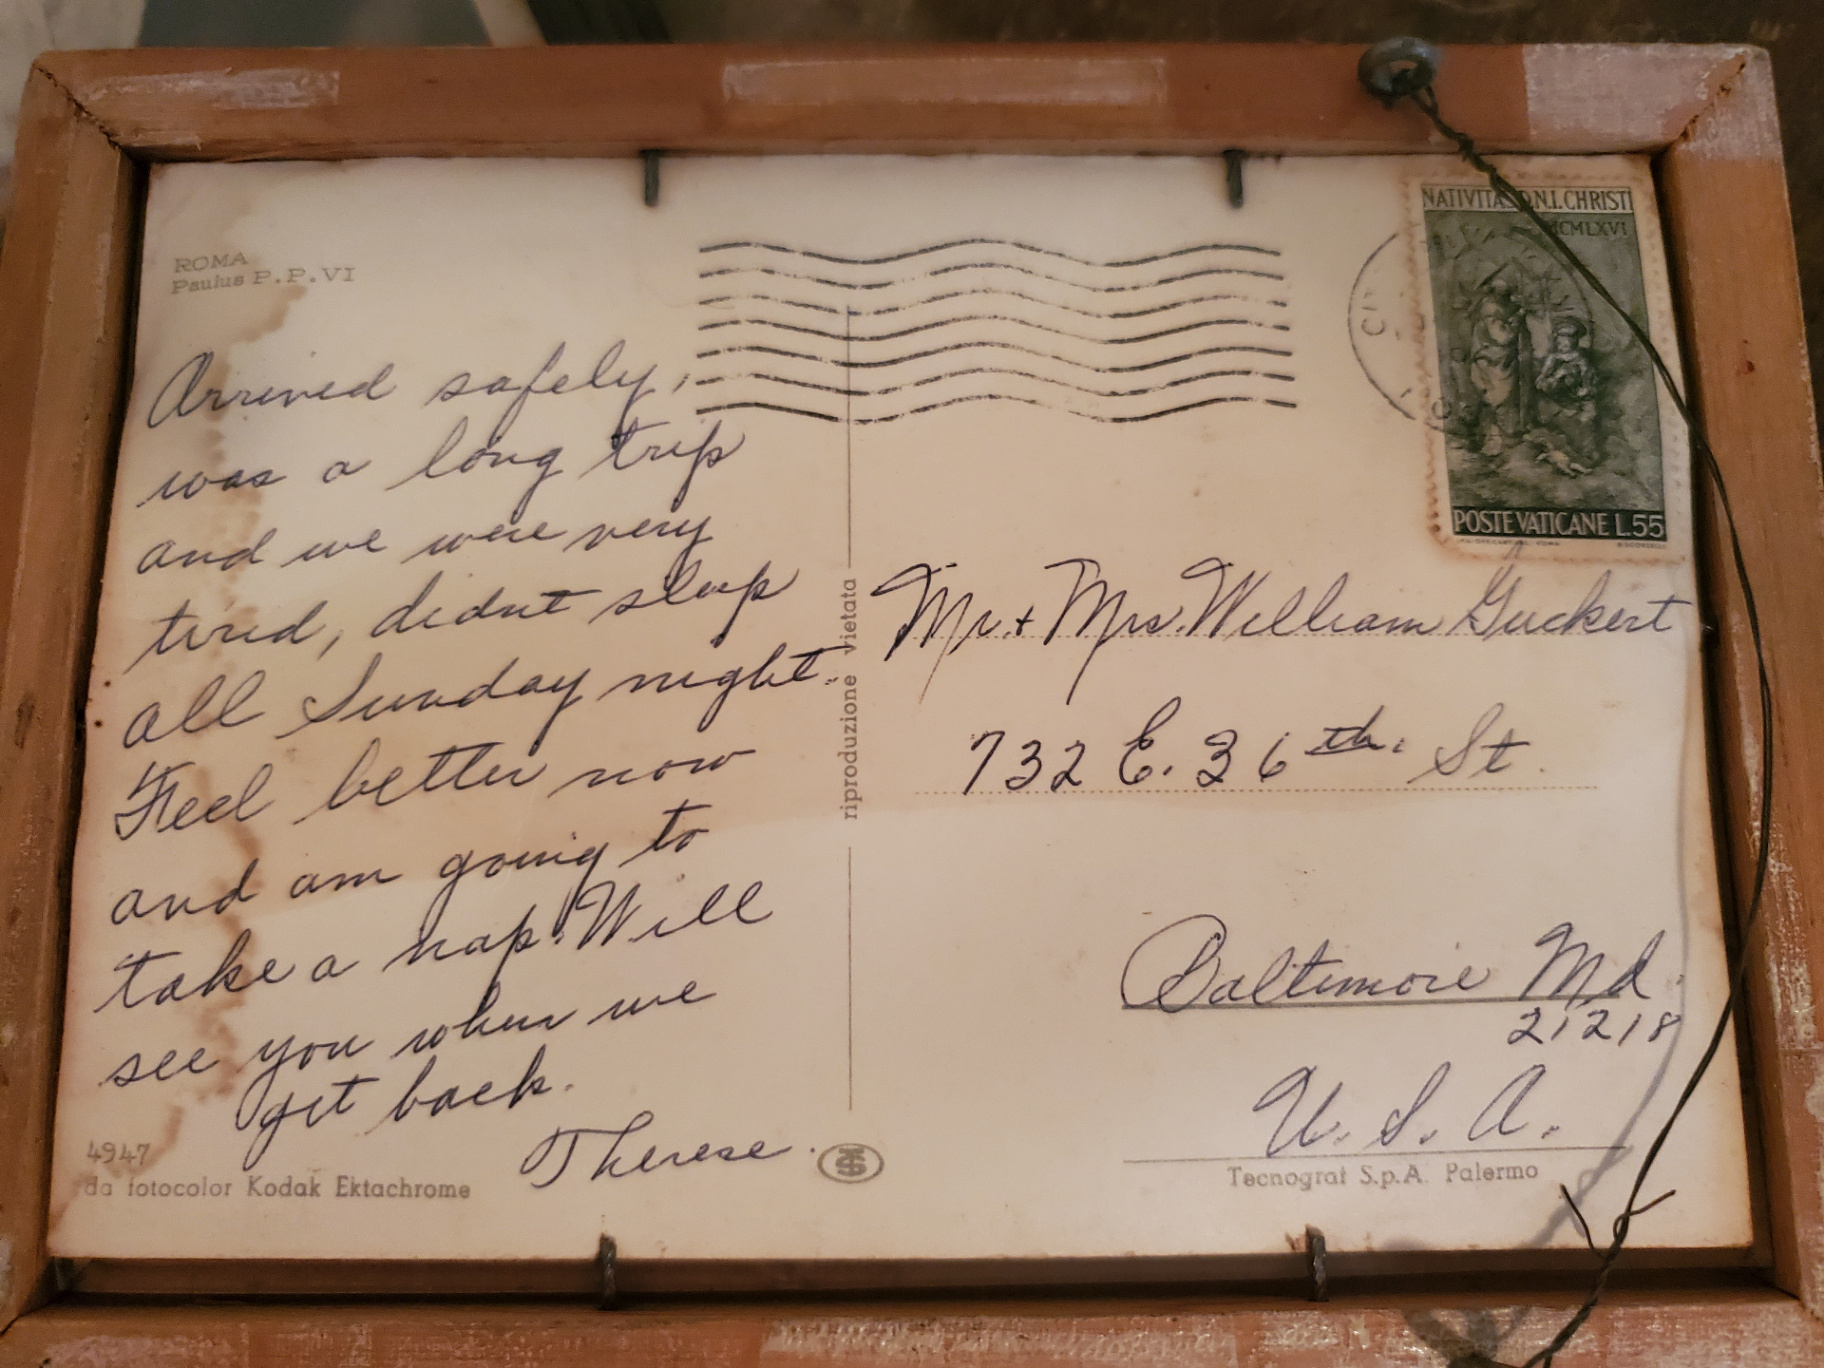 ROMA
Paulus P.P.VI
Arrived safely,
was a long trip
and we were very
tired, didnt sleep
all Sunday night.
Feel better now
and am going to
take a nap. Will
see you when we
get back.
Therese.
4947
da fotocolor Kodak Ektachrome
riproduzione vietata
NATIVITAS D.N.I. CHRISTI
MCMLXVI
POSTE VATICANE L.55
Mr. + Mrs. William Guckert
732 E. 36th. St.
Baltimore Md.
21218
U. S. A.
Tecnograf S.p.A. Palermo